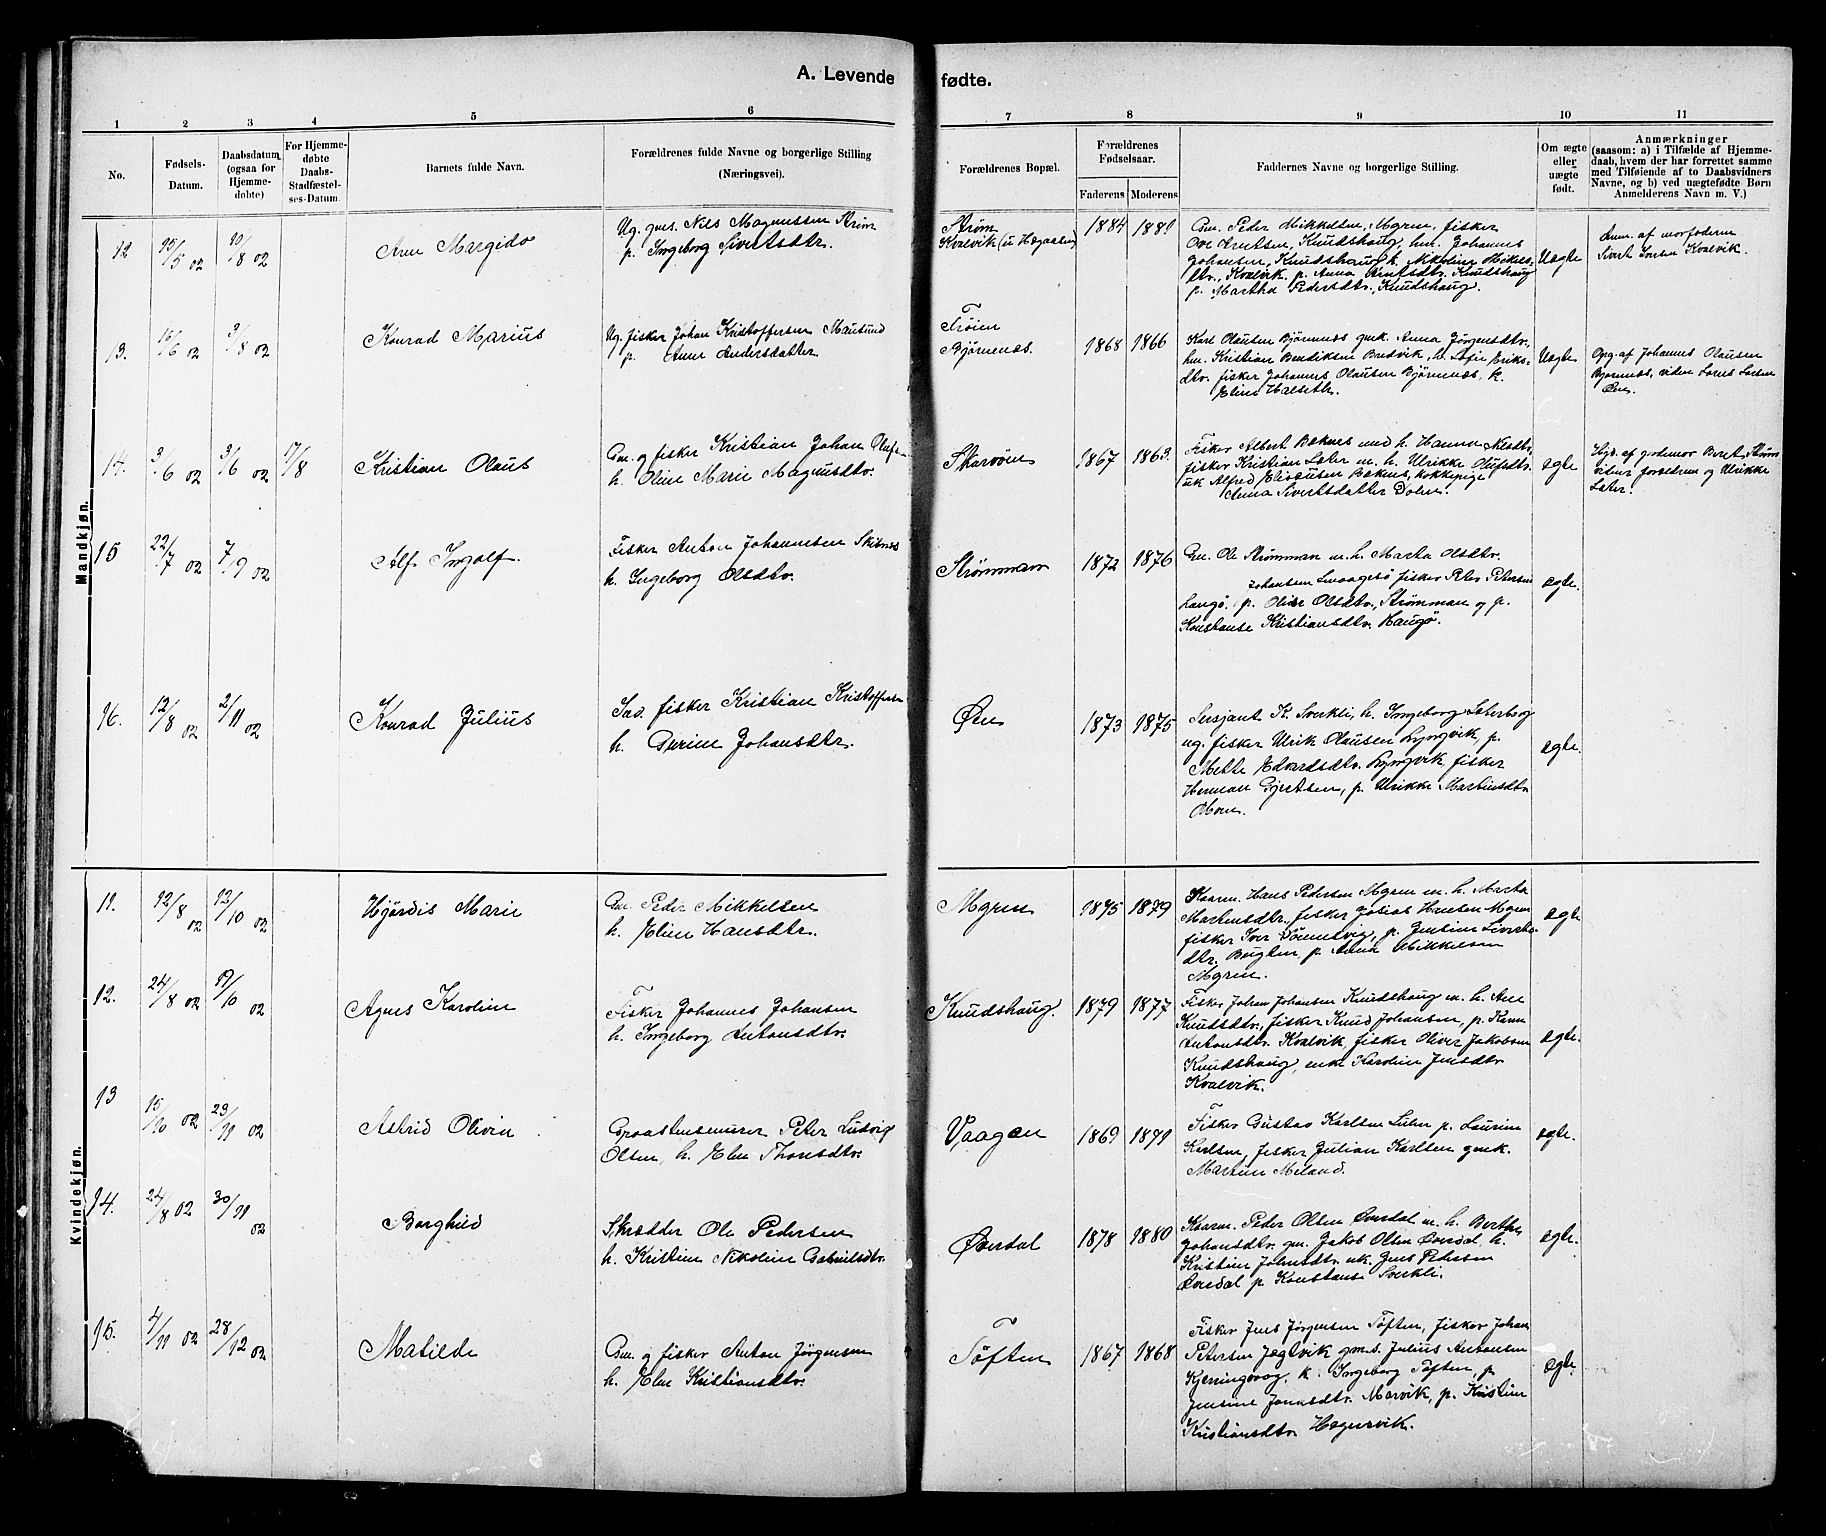 A. Levende fødte.
1 2 3 4 5 6 7 8 9 10 11
No.
Fødsels-
Datum.
Daabsdatum
(ogsaa for
Hjemme-
døbte)
For Hjemme-
døbte
Daabs-
Stadfæstel-
ses-Datum.
Barnets fulde Navn.
Forældrenes fulde Navne og borgerlige Stilling
(Næringsvei).
Forældrenes Bopæl.
Forældrenes
Fødselsaar.
Faderens Moderens
Faddernes Navne og borgerlige Stilling.
Om ægte
eller
uægte
født.
Anmærkninger
(saasom: a) i Tilfælde af Hjemme-
daab, hvem der har forrettet samme
med Tilføiende af to Daabsvidners
Navne, og b) ved uægtefødte Børn
Anmelderens Navn m. V.)
Mandkjøn.
12 15/5 02 10/8 02 Arne Margido
Ug. gus. Nils Magnussen Strøm
p. Ingeborg Sivertsdtr.
Strøm
Kvalvik
1884 1881
Gm. Peder Mikkelsen, Mgren, fisker
Ove Arntsen, Knudshaug, hm. Johannes
Johansen, Knudshaug, h. Nikoline
dtr., Kvalvik, p. Anna Arntsdtr. Knudshaug
p. Martha Pedersdtr., Knudshaug.
Uægte
Anm. af morfaderen
Sivert Larsen Kvalvik.
13. 15/6 02 3/8 02 Konrad Marius
Ug. fisker Johan Kristoffersen Mausund
p. Anne Andersdatter
Frøien
Bjørnenæs.
1868 1866
Karl Olausen Bjørnenæs gmk. Anna Jørgensdtr.
hm. Kristian Bendiksen Bredvik, h. Sofie Eriks-
dtr. fisker Johannes Olausen Bjørnenæs, k.
Eline Halsetr.
Uægte
Opg. af Johannes Olausen
Bjørnenæs, viden Lorns Larsen
Øen.
14. 3/6 02 3/6 02 17/8 Kristian Olaus
Gm. og fisker Kristian Johan Olafsen
h. Oline Marie Magnusdtr.
Skarvøen
1867 1863.
Fisker Albert Beknes med h. Hanna Nilsdtr,
fisker Kristian Sæter m. h. Ulrikke Olufsdtr.
uk. Alfred Eliseusen Bæknes, kokkepige
Anna Sivertsdatter Dolm.
ægte
Hjd. af godemor Beret Strøm
vidner forældrene og Ulrikke
Sæter.
15 22/7 02 7/9 02 Alf Ingolf.
Fisker Anton Johannesen Skibnes
h. Ingeborg Olsdtr.
Strømman
1872 1876
Gm. Ole Strømman m. h. Marta Olsdtr.
Johansen Smaagesø fisker Peter Petersen
Langø. p. Oline Olsdtr., Strømman og p.
Konstanse Kristiansdtr. Haugø.
ægte.
16. 12/8 02 2/11 02 Konrad Julius
Sad. fisker Kristian Kristoffersen
h. Gurine Johansdtr.
Øen
1873 1875
Sersjant K. Sverkli, h. Ingeborg Sæterbog
ug. fisker Ulrik Olausen Lyngvik, p.
Mette Edvardsdtr. Lyngvik, fisker
Herman Gjertsen, p. Ulrikke Martinsdtr.
ægte.
Kvindekjøn.
11. 12/8 02 12/10 02 Hjørdis Marie
Gm. Peder Mikkelsen
h. Eline Hansdtr.
Mgren
1875 1879
Kaarm. Hans Pedersen Mgren m. h. Marta
Martinsdtr., fisker Josias Hansen Mgren
fisker Iver Sønnesvig, p. Gusine Siverts-
dtr. Bugten, p. Anna Mikkelsen
Mgren.
ægte
12. 24/8 02 19/10 02 Agnes Karoline
Fisker Johannes Johansen
h. Ingeborg Antonsdtr.
Knudshaug.
1879 1877
Fisker Johan Johansen Knudshaug m. h. Ane
Knudsdtr., fisker Knud Johansen, p. Karen
Antonsdtr. Kvalvik, fisker Oliver Jakobsen
Knudshaug, enke Karoline Jensdtr.
Kvalvik.
ægte.
13 15/10 02 23/11 02 Astrid Olivie
Graastensmurer Peter Ludvig
Olsen, h. Eline Thonsdtr.
Vaagen
1869 1871
Fisker Gustav Karlsen p. Laurine
Karlsen, fisker Julian Karlsen gmk.
Martine Meland.
ægte.
14. 24/8 02 30/11 02 Borghild
Skrædder Ole Pedersen
h. Kristine Nikoline Gabrielsdtr.
Øverdal
1878 1880
Kaarm. Peder Olsen Øverdal m. h. Berthe
Johansdtr. gm. Jakob Olsen Øverdal, h.
Kristine Johnsdtr. uk. Jens Petersen
Øverdal p. Konstanse Sverkli.
ægte.
15. 4/11 02 28/12 02 Matilde
Gm. og fisker Anton Jørgensen
h. Eline Kristiansdtr.
Tøften
1867 1868
Fisker Jens Jørgensen Tøften, fisker Johan
Petersen Jegtvik gm. s. Julius Antonsen
Kjerringvaag, k. Ingeborg Tøften, p.
Jensine Jonasdtr. Marvik, p. Kristine
Kristiansdtr. Hegervik.
ægte.